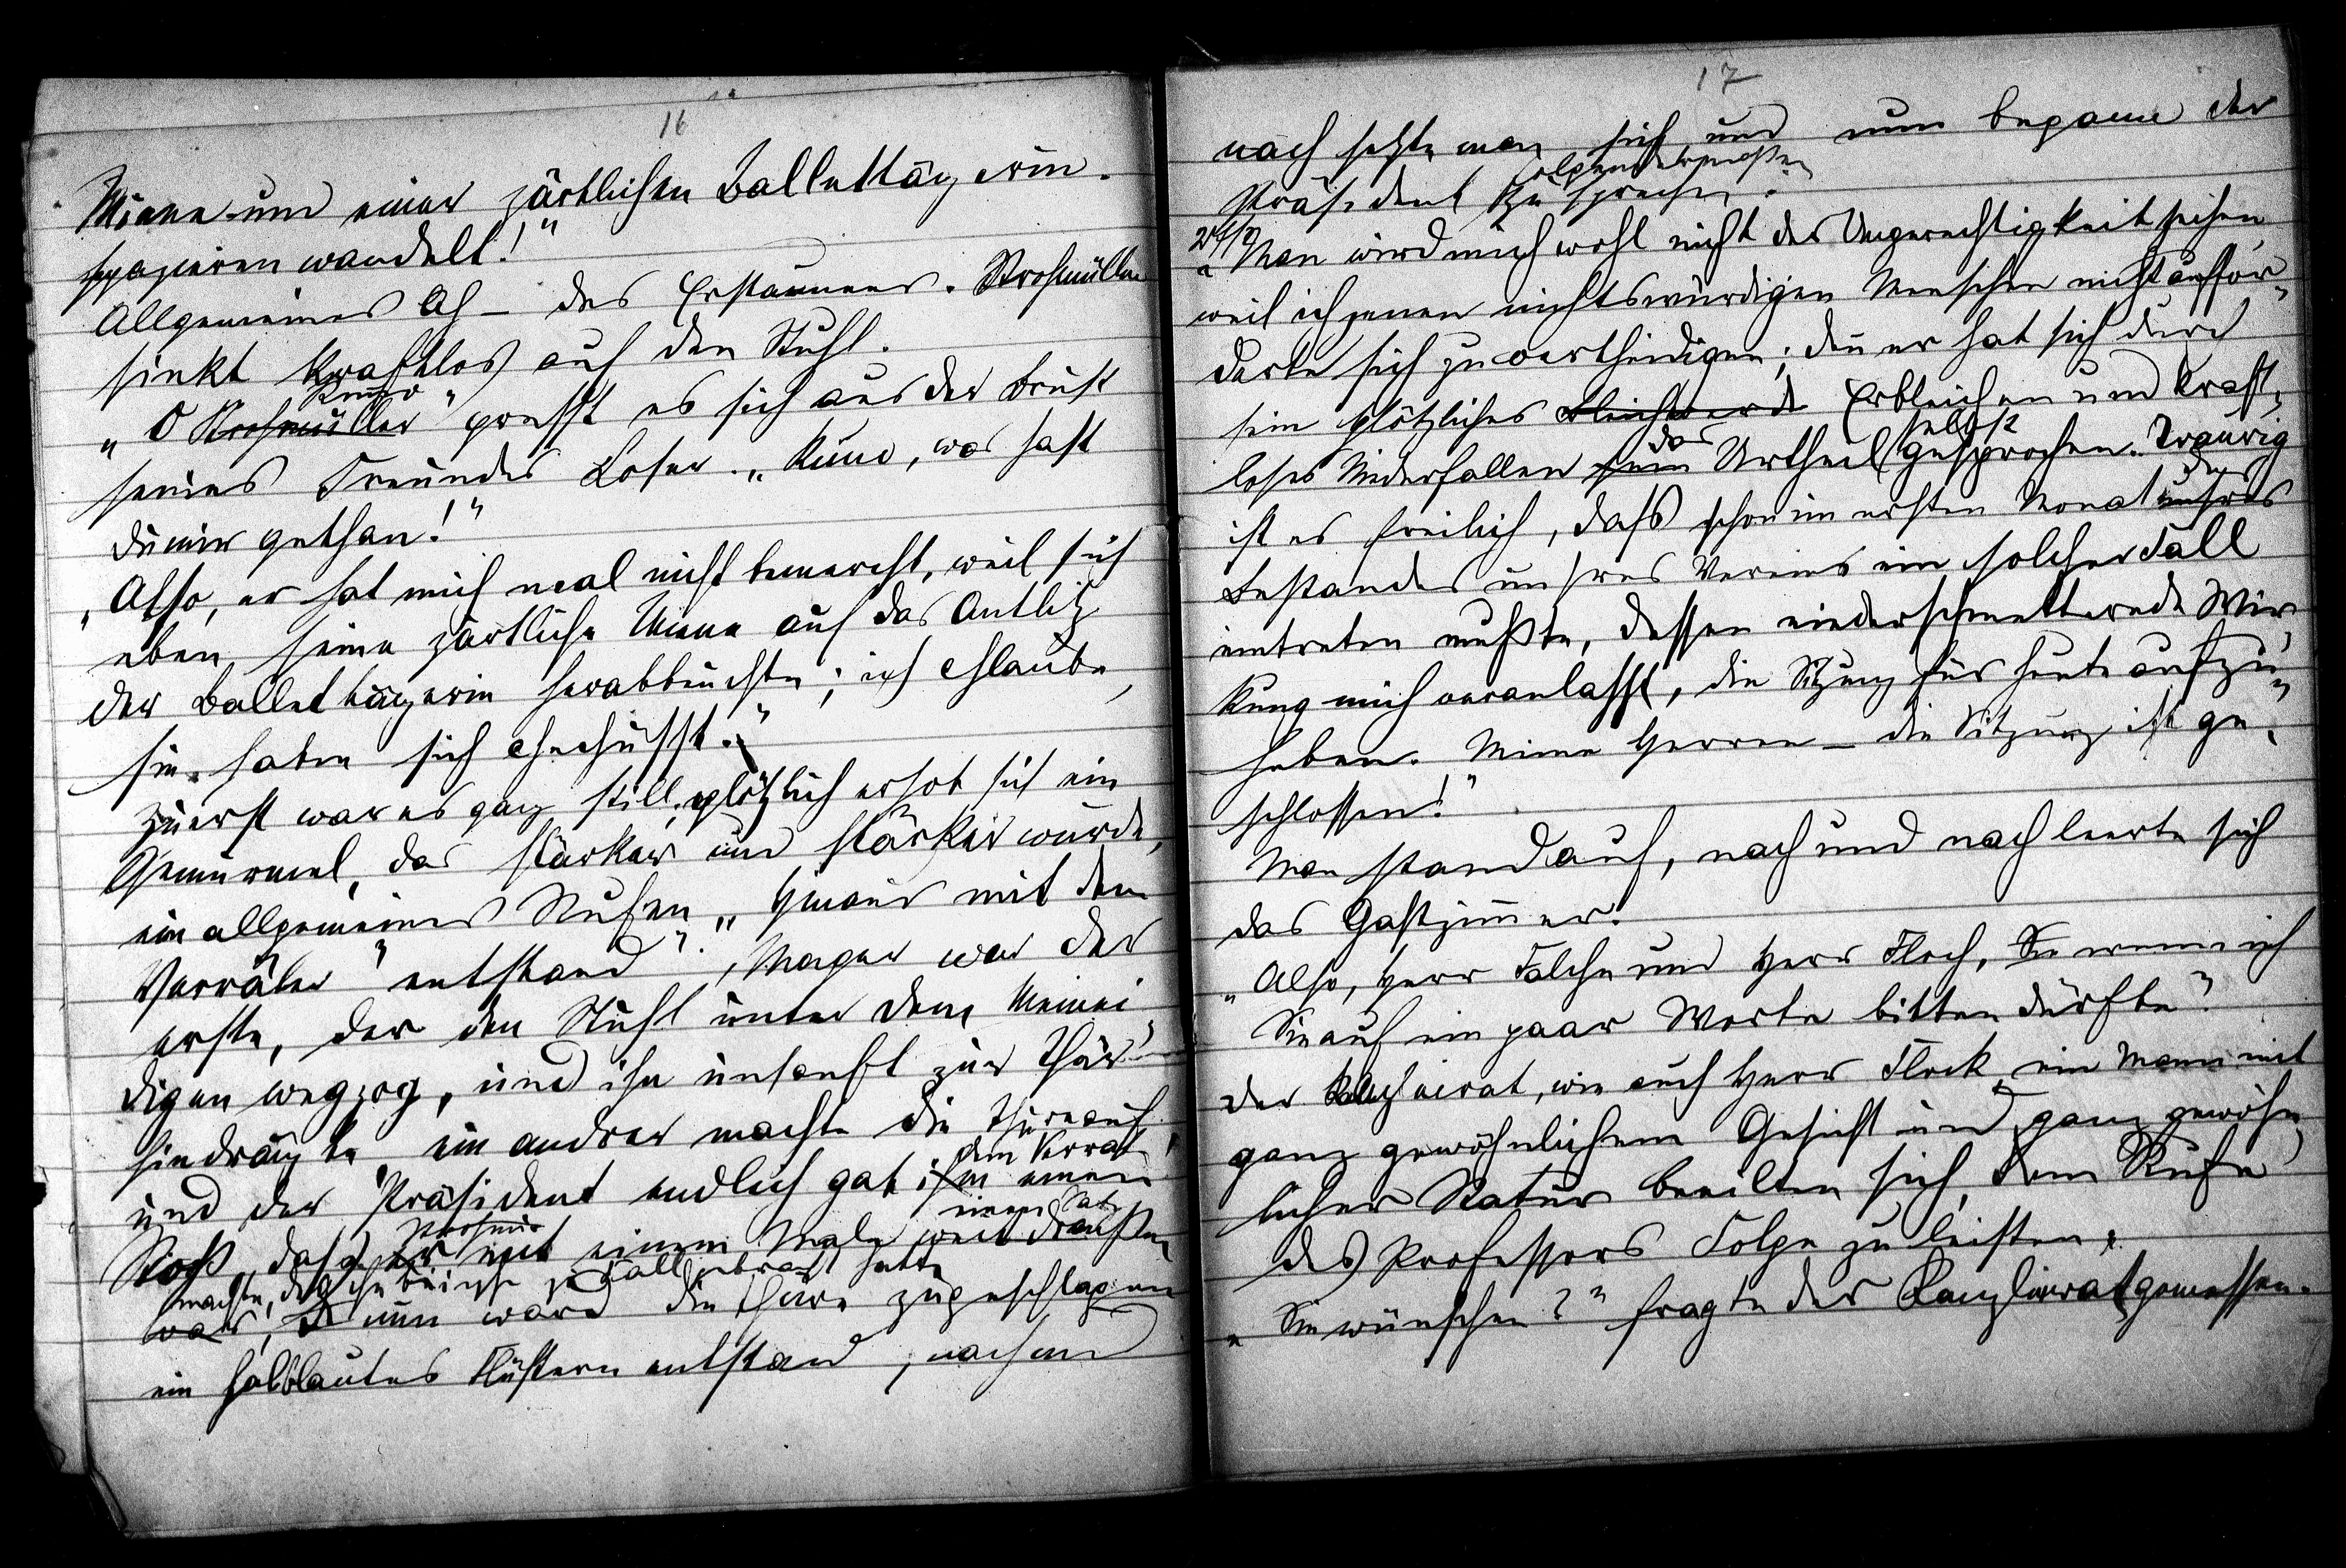 16
Miene und einer zärtlichen Ballettänzerin
spazieren wandelt!"
Allgemeines Ah – des Erstaunens. Strohmüller
sinkt kraftlos auf den Stuhl.
Kuno
„O Strohmüller" presst es sich aus der Brust
seines Freundes Loser. „Kuno, was hast
du mir gethan!"
„Also, er hat mich mal nicht bemerkt, weil sich
eben seine zärtliche Miene auf das Antlitz
der Ballettänzerin herabbeugte; ich glaube,
sie haben sich geküsst."
Zuerst war es ganz still, plötzlich erhob sich ein
Gemurmel, das stärker und stärker wurde,
ein allgemeines Rufen „Hinaus mit dem
Verräter" entstand. Mager war der
erste, der den Stuhl unter dem Meinei-
digen wegzog, und ihn unsanft zur Thür
hindrängte ein andrer machte die Thüre auf
dem Verrät
und der Präsident endlich gab ihm einen
einen Satz
Strohmü
Stoß, dass er mit einem Male weit draußen
machte, der ihn beinahe zu Fall gebracht hatte
war, & nun ward die Thüre zugeschlagen
ein halblautes Flüstern entstand, nach und
17
nach setzte man sich und nun begann der
folgendermaßen
Präsident zu sprechen:
„Man wird mich wohl nicht der Ungerechtigkeit zeihen,
weil ich jenen nichtswürdigen Menschen nicht auffor-
derte sich zu vertheidigen; denn er hat sich durch
sein plötzliches Bleichwerde Erbleichen und kraft-
das selbst
loses Niederfallen sein Urtheil gesprochen. Traurig
des
ist es freilich, dass schon im ersten Monat unsres
Bestandes unsres Vereins ein solcher Fall
eintreten mußte, dessen niederschmetternde Wir-
kung mich veranlasst, die Sitzung für heute aufzu-
heben. Meine Herren – die Sitzung ist ge-
schlossen!"
Man stand auf, nach und nach leerte sich
das Gastzimmer.
„Also, Herr Falche und Herr Flock, Sie wenn ich
Sie auf ein paar Worte bitten dürfte?"
Der Kanzleirat, wie auch Herr Flock, ein Mann mit
ganz gewöhnlichem Gesicht und ganz gewöhn-
licher Statur beeilten sich, dem Rufe
des Professors Folge zu leisten.
„Sie wünschen?" fragte der Kanzleirat gemessen.